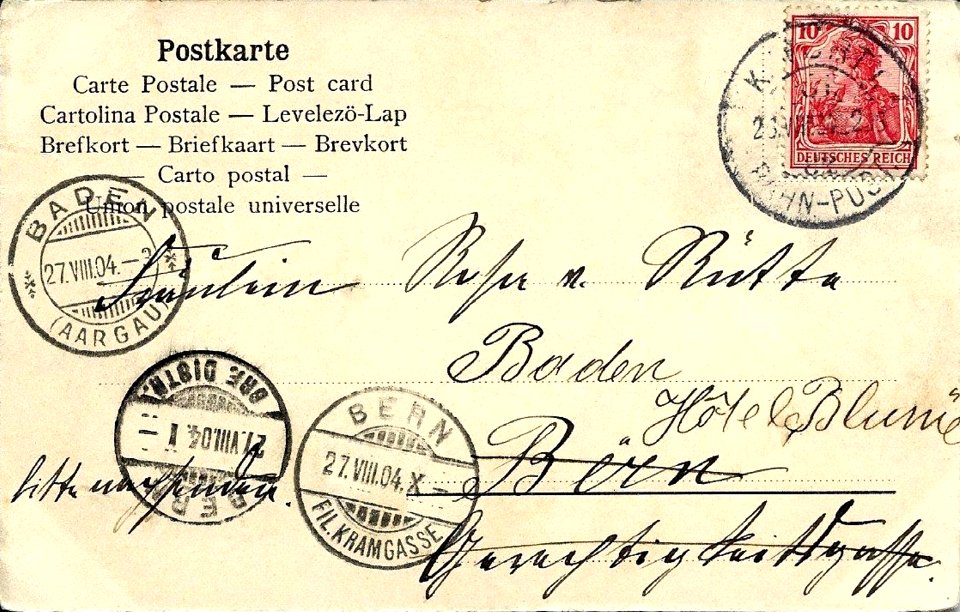 Postkarte
Carte Postale — Post card
Cartolina Postale — Levelezö-Lap
Brefkort — Briefkaart — Brevkort
— Carto postal —
Union postale universelle
10 10
DEUTSCHES REICH
BAHN-POST
BADEN
27.VIII.04.
(AARGAU)
Fräulein Rosa v. Rütte
Baden
Hôtel Blume
Bern
Gerechtigkeitsgasse.
bitte nachsenden.
BERN
27.VIII.04.X
BRE DISTR.
BERN
27.VIII.04.X—
FIL.KRAMGASSE